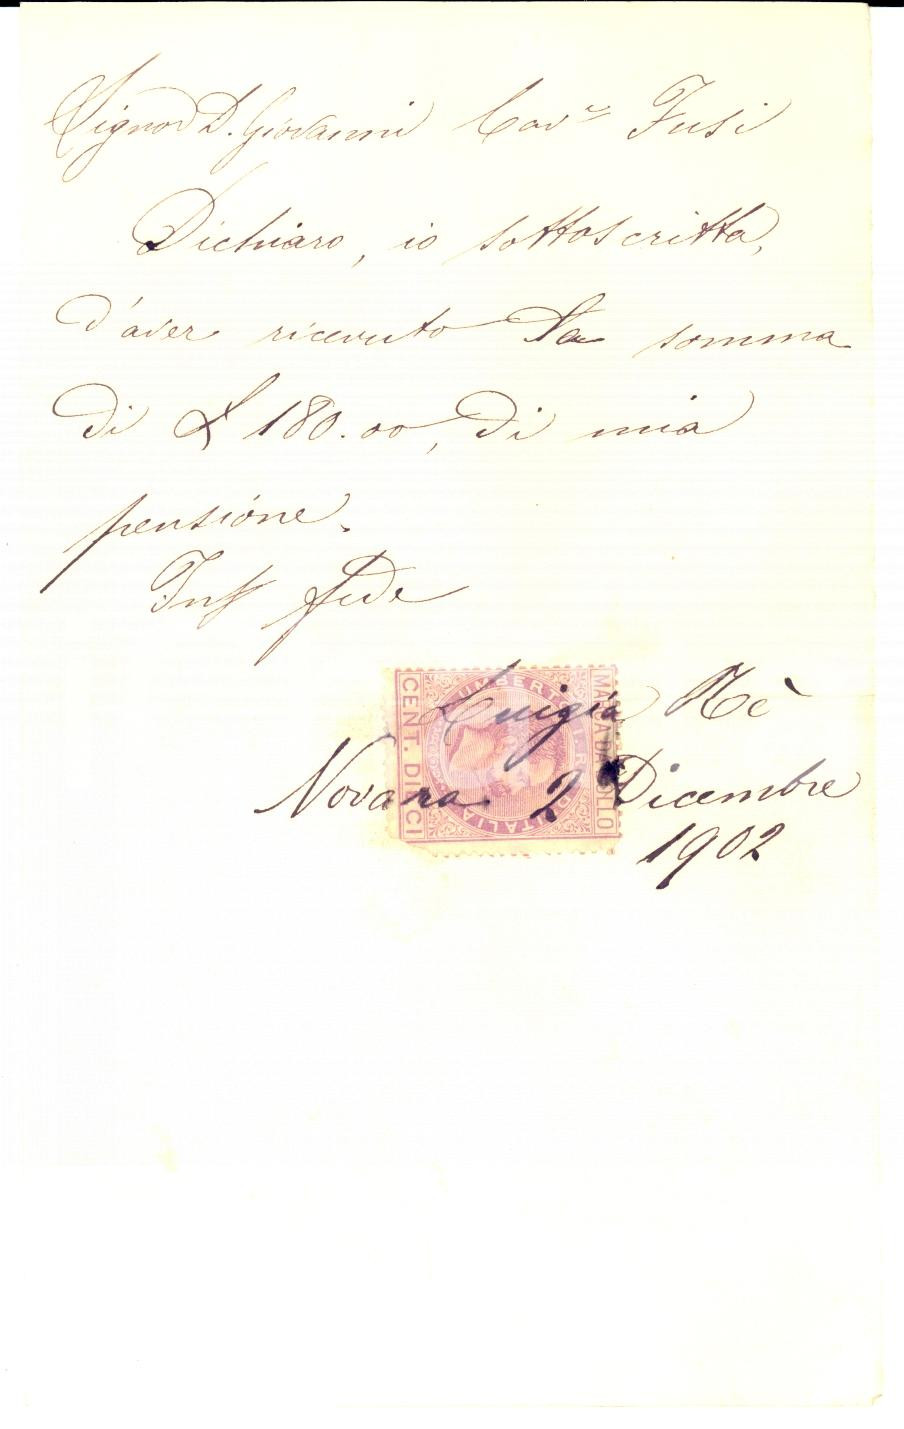 Signor D. Giovanni Cav.re Fusi
Dichiaro, io sottoscritta,
d'aver ricevuto la somma
di £ 180.00, di mia
pensione.
In fede
Luigia Rè
Novara 2 Dicembre
1902
CENT. DIECI
UMBERTO I RE D'ITALIA
MARCA DA BOLLO